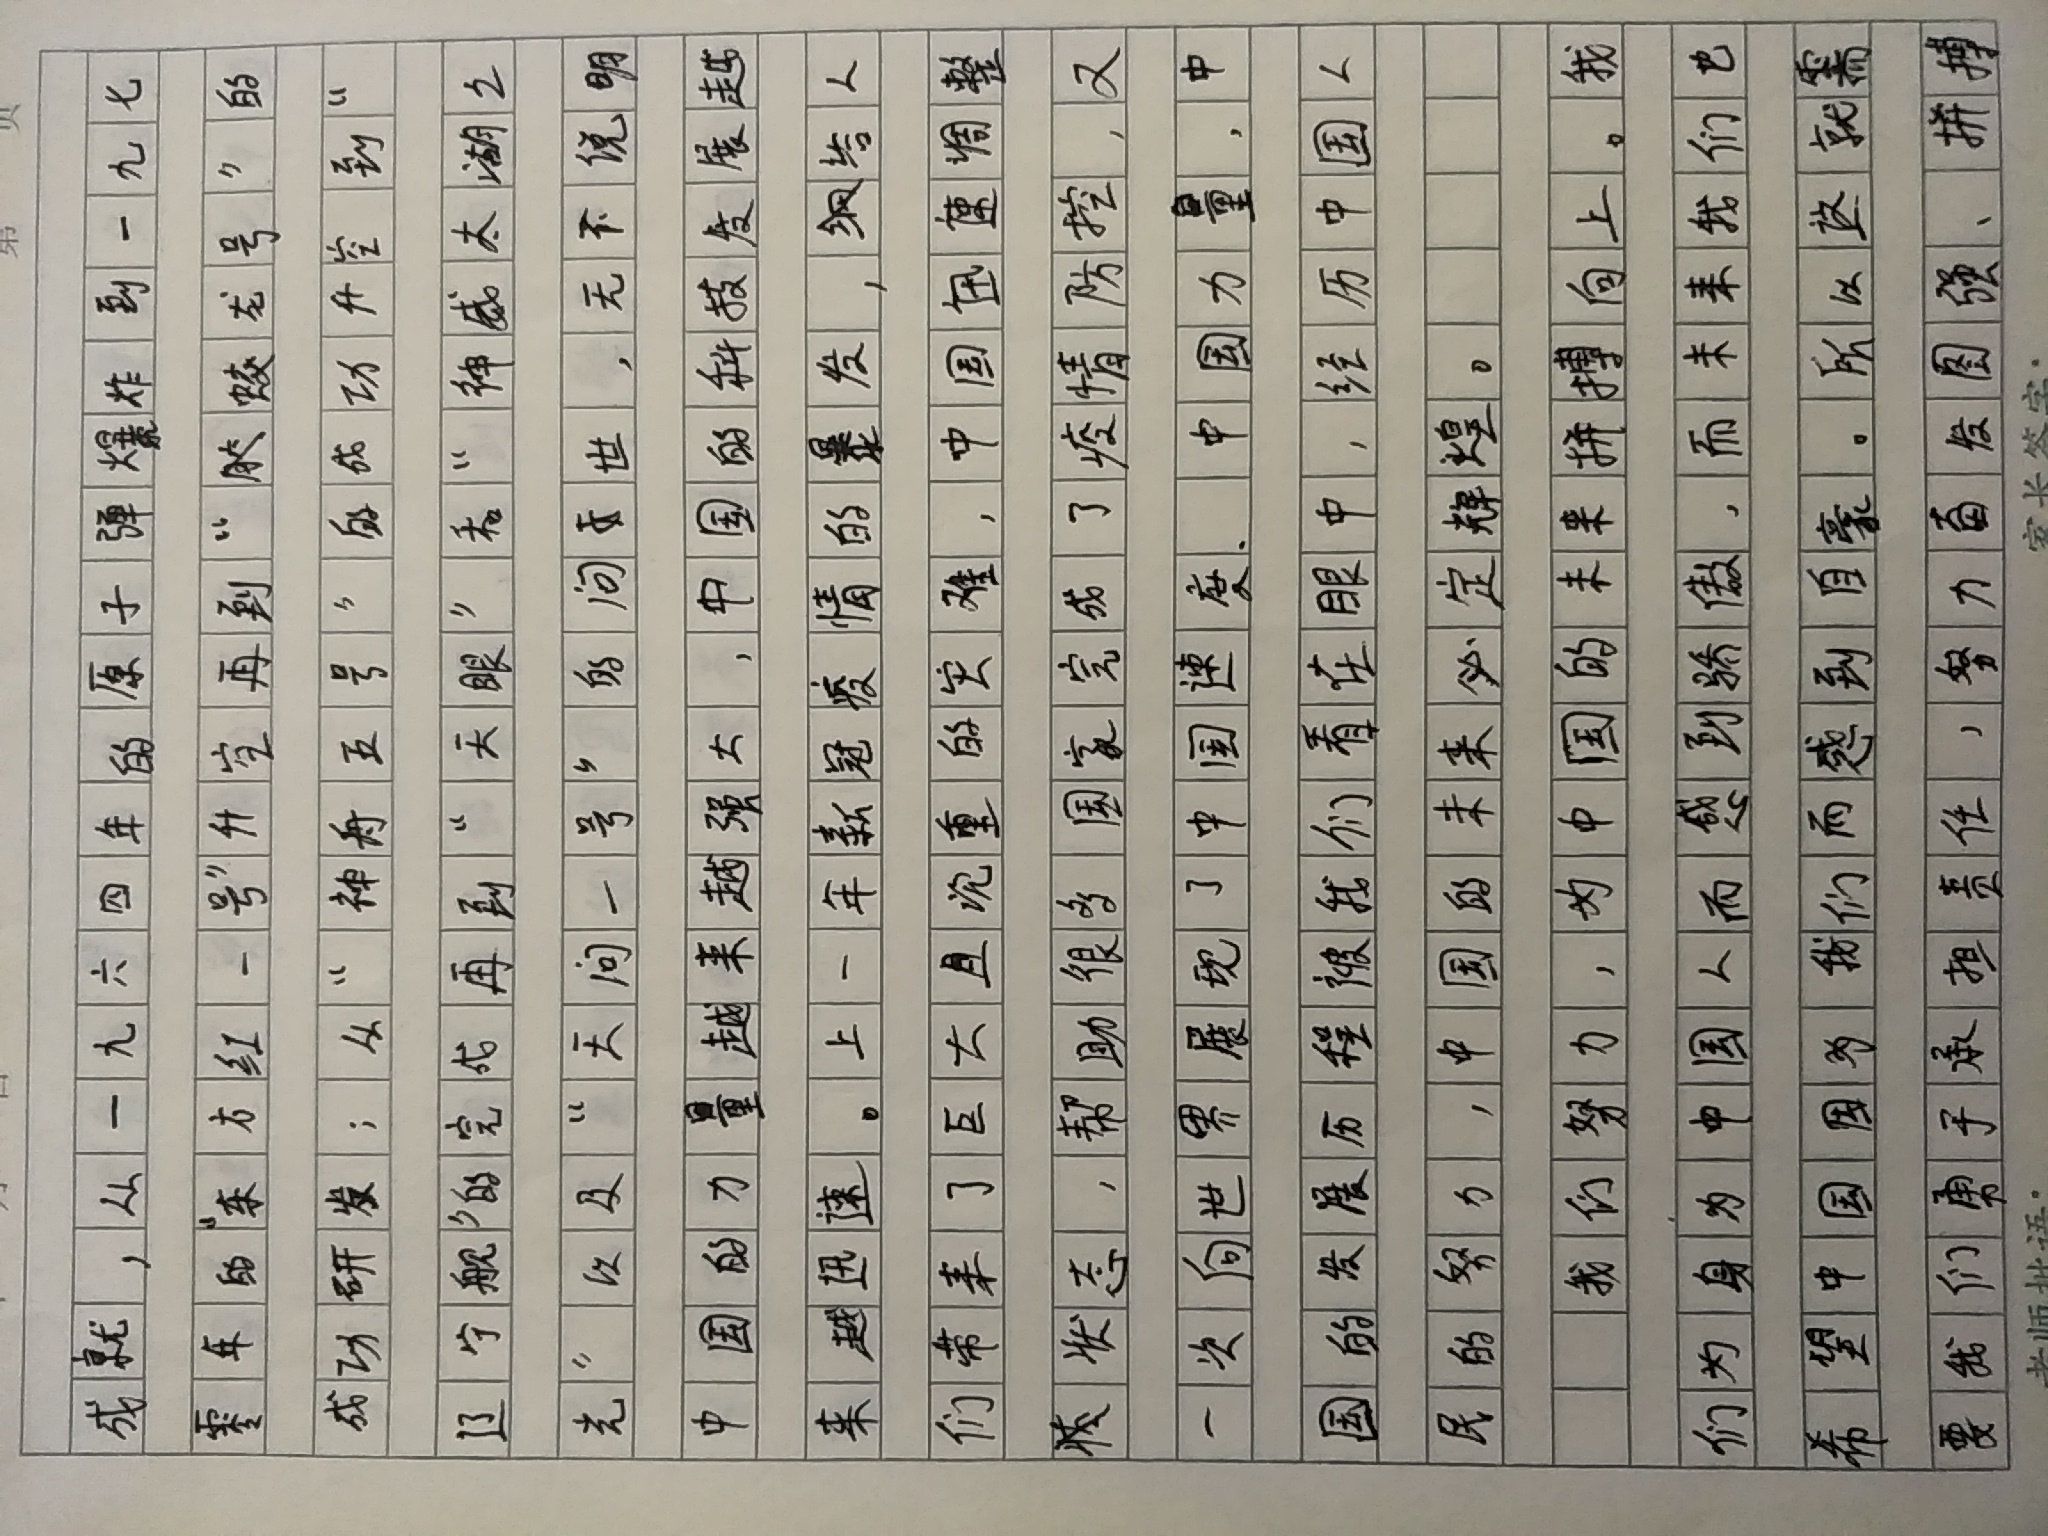 第 页
成就,从一九六四年的原子弹爆炸到一九七
零年的“东方红一号”升空再到“蛟龙号”的
成功研发;从“神舟五号”的成功升空到“
辽宁舰”的完成再到“天眼”和“神威太湖之
光”以及“天问一号”的问世,无不说明
中国的力量越来越强大,中国的科技发展越
来越迅速。上一年新冠疫情的暴发,给人
们带来了巨大且沉重的灾难,中国迅速调整
状态,帮助很多国家完成了疫情防控,又
一次向世界展现了中国速度.中国力量,中
国的发展历程被我们看在眼中,经历中国人
民的努力,中国的未来必定辉煌。
我们努力,为中国的未来拼搏向上。我
们为身为中国人而感到骄傲,而未来我们也
希望中国因为我们而感到自豪。所以这就需
要我们勇于承担责任,努力奋发图强、拼搏
老师批语: 家长签字: